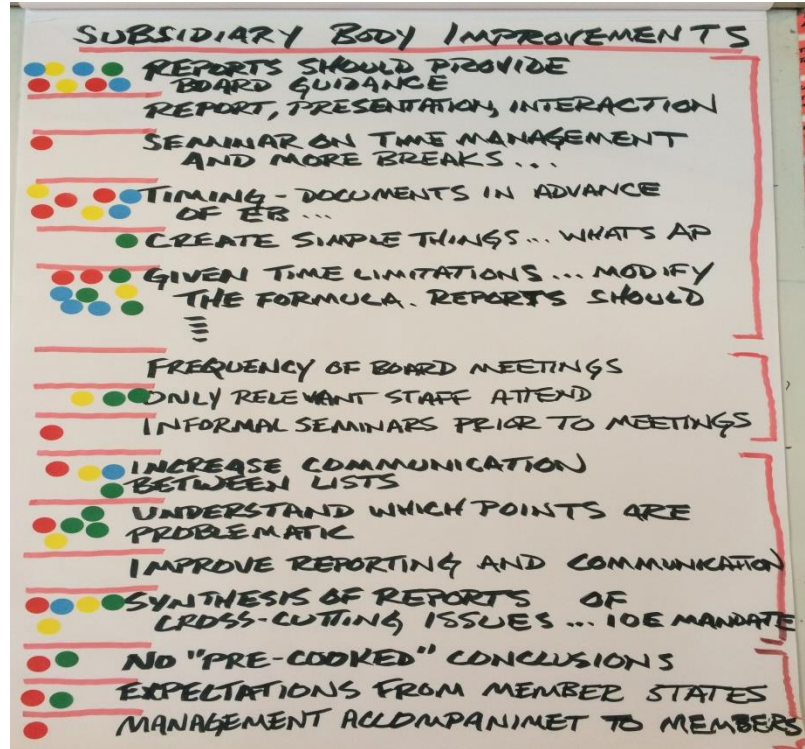 SUBSIDIARY BODY IMPROVEMENTS
REPORTS SHOULD PROVIDE
BOARD GUIDANCE
REPORT, PRESENTATION, INTERACTION
SEMINAR ON TIME MANAGEMENT
AND MORE BREAKS...
TIMING - DOCUMENTS IN ADVANCE
OF EB...
CREATE SIMPLE THINGS... WHATS AP
GIVEN TIME LIMITATIONS... MODIFY
THE FORMULA. REPORTS SHOULD
FREQUENCY OF BOARD MEETINGS
ONLY RELEVANT STAFF ATTEND
INFORMAL SEMINARS PRIOR TO MEETINGS
INCREASE COMMUNICATION
BETWEEN LISTS
UNDERSTAND WHICH POINTS ARE
PROBLEMATIC
IMPROVE REPORTING AND COMMUNICATION
SYNTHESIS OF REPORTS OF
CROSS-CUTTING ISSUES... IOE MANDATE
NO "PRE-COOKED" CONCLUSIONS
EXPECTATIONS FROM MEMBER STATES
MANAGEMENT ACCOMPANIMET TO MEMBERS